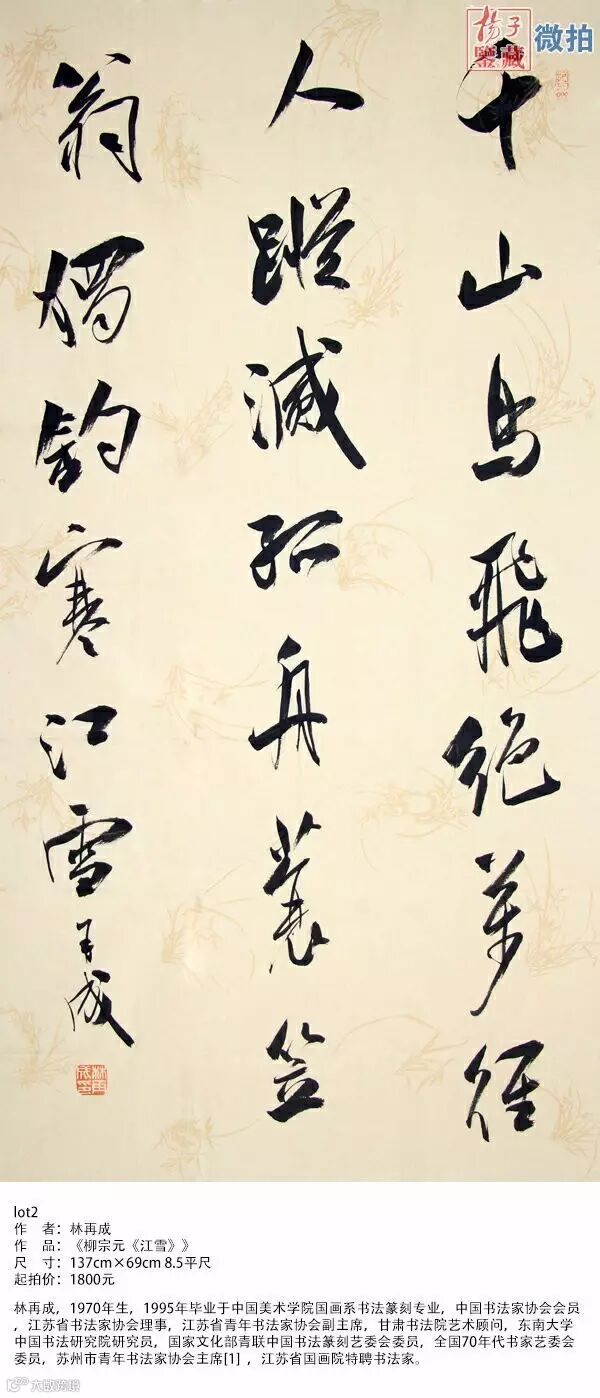 揚子
鑒藏
微拍
千山鳥飛絶萬徑
人蹤滅孤舟蓑笠
翁獨釣寒江雪 再成
林再成印
lot2
作 者：林再成
作 品：《柳宗元《江雪》》
尺 寸：137cm×69cm 8.5平尺
起拍价：1800元
林再成，1970年生，1995年毕业于中国美术学院国画系书法篆刻专业，中国书法家协会会员
，江苏省书法家协会理事，江苏省青年书法家协会副主席，甘肃书法院艺术顾问，东南大学
中国书法研究院研究员，国家文化部青联中国书法篆刻艺委会委员，全国70年代书家艺委会
委员，苏州市青年书法家协会主席[1] ，江苏省国画院特聘书法家。
大数跨境